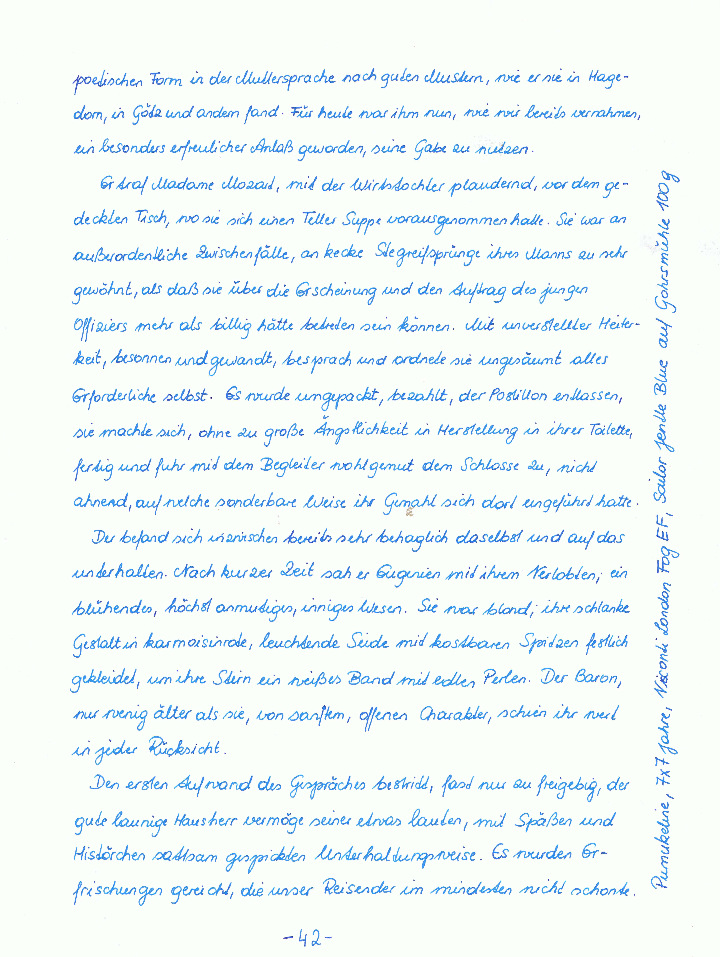 poetischen Form in der Muttersprache nach guten Mustern, wie er sie in Hage-
dorn, in Götz und andern fand. Für heute war ihm nun, wie wir bereits vernahmen,
ein besonders erfreulicher Anlaß geworden, seine Gabe zu nutzen.
Er traf Madame Mozart, mit der Wirtstochter plaudernd, vor dem ge-
deckten Tisch, wo sie sich einen Teller Suppe vorausgenommen hatte. Sie war an
außerordentliche Zwischenfälle, an kecke Stegreifsprünge ihres Manns zu sehr
gewöhnt, als daß sie über die Erscheinung und den Auftrag des jungen
Offiziers mehr als billig hätte betreten sein können. Mit unverstellter Heiter-
keit, besonnen und gewandt, besprach und ordnete sie ungesäumt alles
Erforderliche selbst. Es wurde umgepackt, bezahlt, der Postillon entlassen,
sie machte sich, ohne zu große Ängstlichkeit in Herstellung in ihrer Toilette,
fertig und fuhr mit dem Begleiter wohlgemut dem Schlosse zu, nicht
ahnend, auf welche sonderbare Weise ihr Gemahl sich dort eingeführt hatte.
Der befand sich inzwischen bereits sehr behaglich daselbst und auf das
unterhalten. Nach kurzer Zeit sah er Eugenien mit ihrem Verlobten; ein
blühendes, höchst anmutiges, inniges Wesen. Sie war blond, ihre schlanke
Gestalt in karmoisinrote, leuchtende Seide mit kostbaren Spitzen festlich
gekleidet, um ihre Stirn ein weißes Band mit edlen Perlen. Der Baron,
nur wenig älter als sie, von sanftem, offenen Charakter, schien ihr wert
in jeder Rücksicht.
Den ersten Aufwand des Gespräches bestritt, fast nur zu freigebig, der
gute launige Hausherr vermöge seiner etwas lauten, mit Späßen und
Histörchen sattsam gespickten Unterhaltungsweise. Es wurden Er-
frischungen gereicht, die unser Reisender im mindesten nicht schonte.
-42-
Pumukeline, 7x7 Jahre, Visconti London Fog EF, Sailor Jentle Blue auf Gohrsmühle 100g